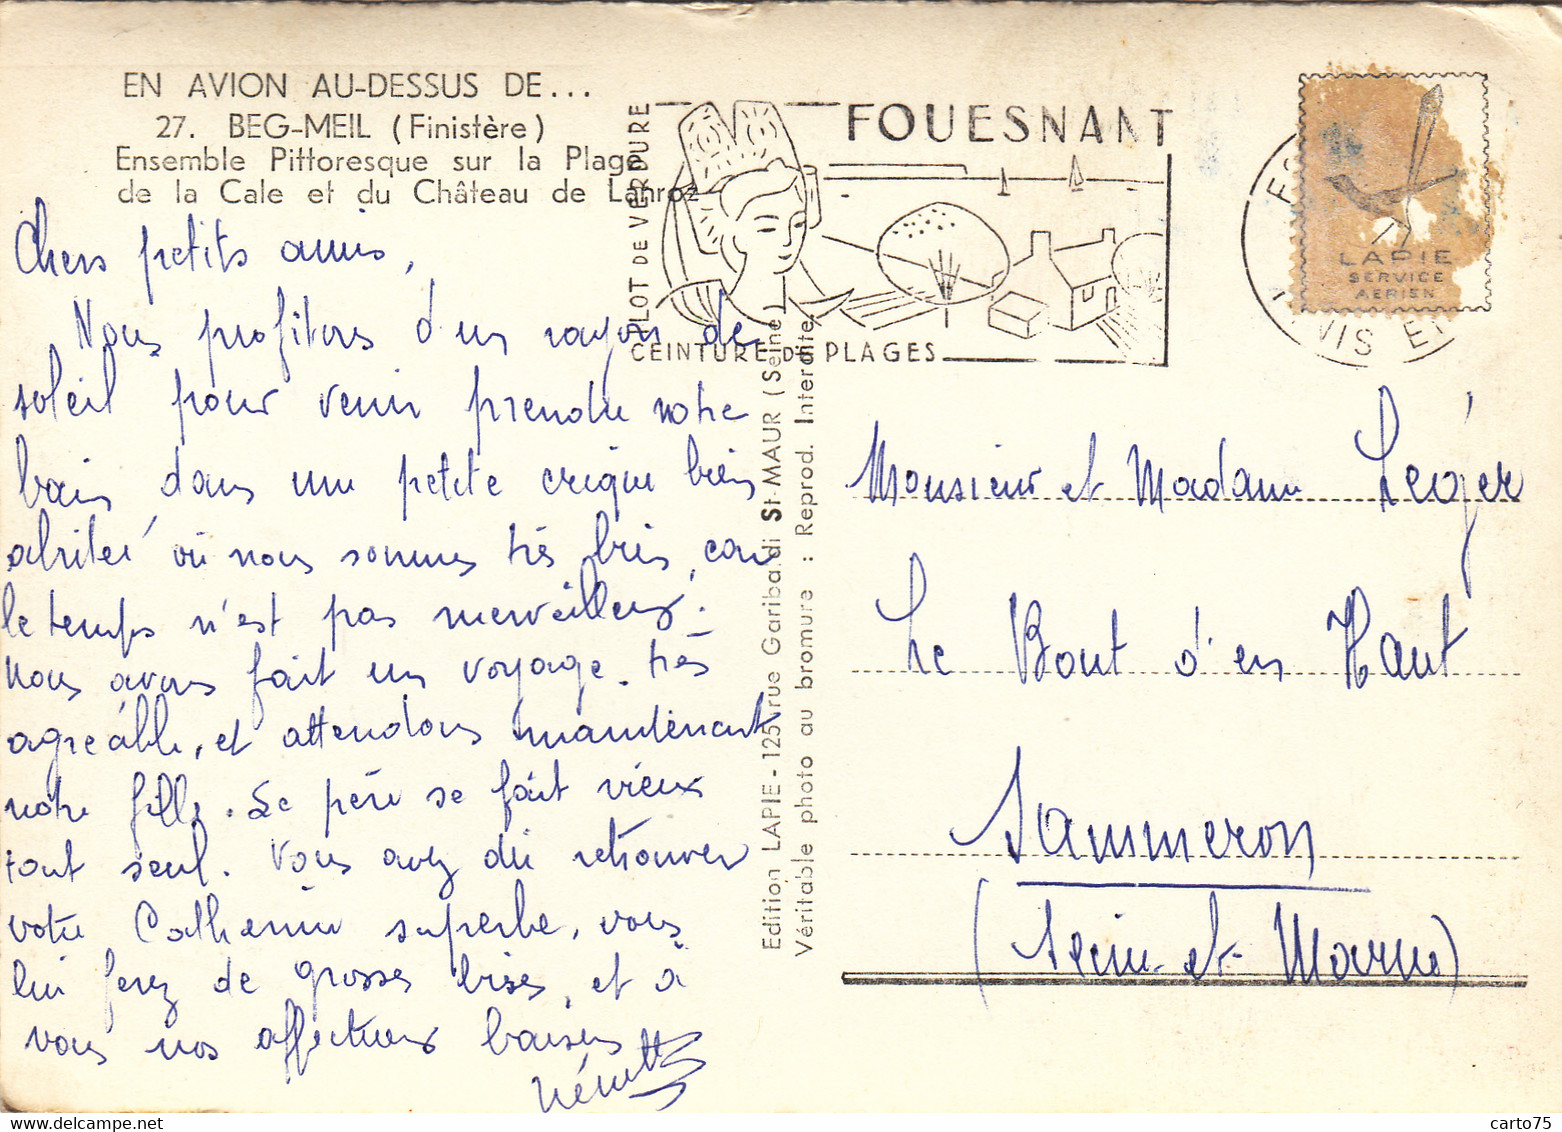 EN AVION AU-DESSUS DE...
27. BEG-MEIL (Finistère)
Ensemble Pittoresque sur la Plage
de la Cale et du Château de Lanroz
Chers petits amis,
Nous profitons d'un rayon de
soleil pour venir prendre notre
bain dans une petite crique bien
abritée où nous sommes très bien, car
le temps n'est pas merveilleux.
Nous avons fait un voyage très
agréable, et attendons maintenant
notre fille. Le père se fait vieux
tout seul. Vous avez dû retrouver
votre Catherine superbe, vous
lui ferez de grosses bises, et à
vous nos affectueux baisers
FOUESNANT
ILOT DE VERDURE
CEINTURE DE PLAGES
LAPIE
SERVICE
AERIEN
Edition LAPIE - 125, rue Garibaldi St-MAUR (Seine)
Véritable photo au bromure : Reprod. Interdite
Monsieur et Madame Leoger
Le Bout d'en Haut
Sammeron
(Seine-et-Marne)
carto75